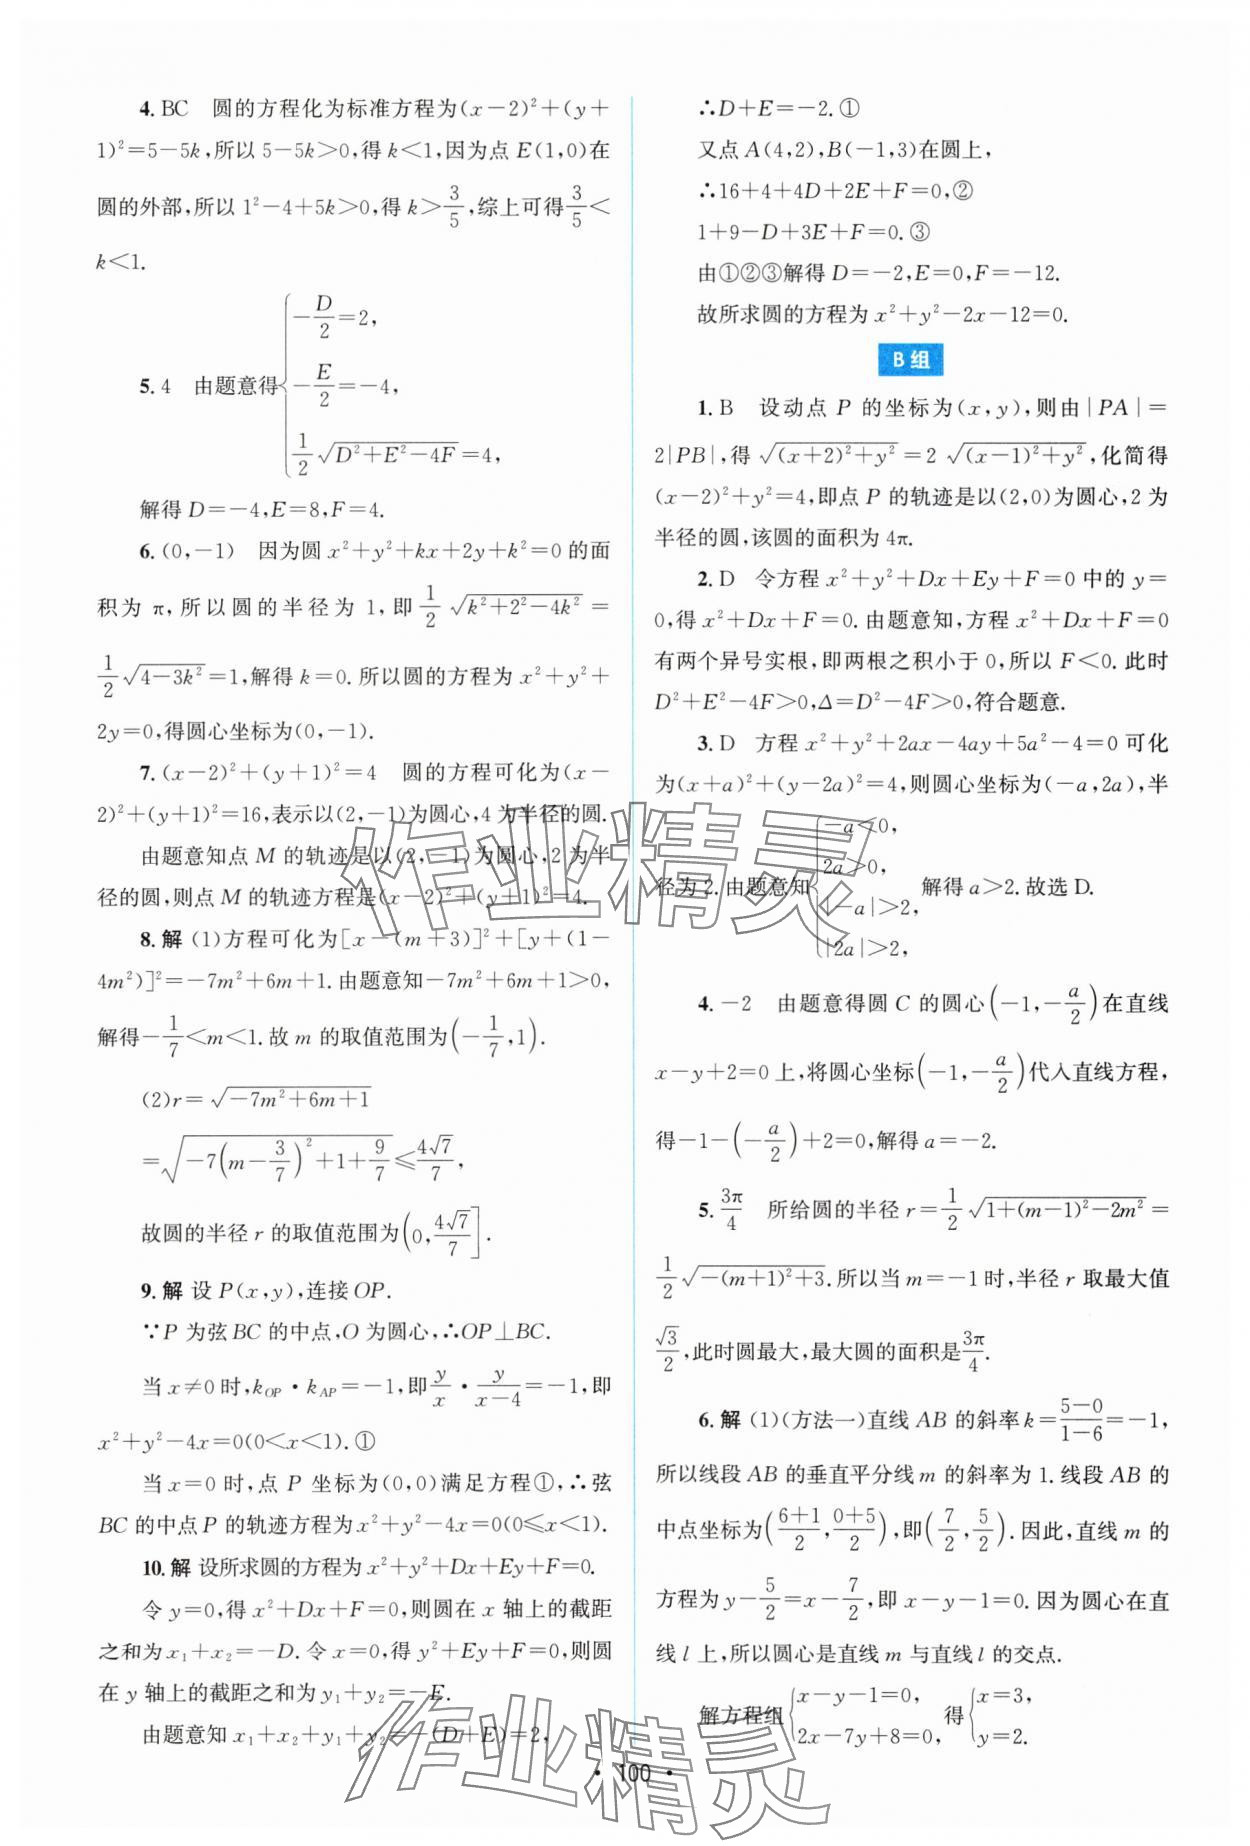 4. BC 圆的方程化为标准方程为(x-2)²+(y+
1)²=5-5k,所以 5-5k>0,得 k<1,因为点 E(1,0)在
圆的外部,所以 1²-4+5k>0,得 k>3/5,综上可得3/5<
k<1.
5. 4 由题意得{-D/2=2,
-E/2=-4,
1/2√(D²+E²-4F)=4,
解得 D=-4,E=8,F=4.
6. (0,-1) 因为圆 x²+y²+kx+2y+k²=0 的面
积为 π,所以圆的半径为 1,即 1/2√(k²+2²-4k²)=
1/2√(4-3k²)=1,解得 k=0.所以圆的方程为 x²+y²+
2y=0,得圆心坐标为(0,-1).
7. (x-2)²+(y+1)²=4 圆的方程可化为(x-
2)²+(y+1)²=16,表示以(2,-1)为圆心,4为半径的圆.
由题意知点 M 的轨迹是以(2,-1)为圆心,2 为半
径的圆,则点 M 的轨迹方程是(x-2)²+(y+1)²=4.
8. 解 (1)方程可化为[x-(m+3)]²+[y+(1-
4m²)]²=-7m²+6m+1.由题意知-7m²+6m+1>0,
解得-1/7<m<1.故 m 的取值范围为(-1/7,1).
(2)r=√(-7m²+6m+1)
=√(-7(m-3/7)²+1+9/7)≤4√7/7,
故圆的半径 r 的取值范围为(0,4√7/7].
9. 解 设 P(x,y),连接 OP.
∵P 为弦 BC 的中点,O 为圆心,∴OP⊥BC.
当 x≠0 时,k_OP·k_AP=-1,即y/x·y/(x-4)=-1,即
x²+y²-4x=0(0<x<1).①
当 x=0 时,点 P 坐标为(0,0)满足方程①,∴弦
BC 的中点 P 的轨迹方程为 x²+y²-4x=0(0≤x<1).
10. 解 设所求圆的方程为 x²+y²+Dx+Ey+F=0.
令 y=0,得 x²+Dx+F=0,则圆在 x 轴上的截距
之和为 x₁+x₂=-D.令 x=0,得 y²+Ey+F=0,则圆
在 y 轴上的截距之和为 y₁+y₂=-E.
由题意知 x₁+x₂+y₁+y₂=-(D+E)=2,
∴D+E=-2.①
又点 A(4,2),B(-1,3)在圆上,
∴16+4+4D+2E+F=0,②
1+9-D+3E+F=0.③
由①②③解得 D=-2,E=0,F=-12.
故所求圆的方程为 x²+y²-2x-12=0.
B 组
1. B 设动点 P 的坐标为(x,y),则由|PA|=
2|PB|,得 √((x+2)²+y²)=2 √((x-1)²+y²),化简得
(x-2)²+y²=4,即点 P 的轨迹是以(2,0)为圆心,2 为
半径的圆,该圆的面积为 4π.
2. D 令方程 x²+y²+Dx+Ey+F=0 中的 y=
0,得 x²+Dx+F=0.由题意知,方程 x²+Dx+F=0
有两个异号实根,即两根之积小于 0,所以 F<0.此时
D²+E²-4F>0,Δ=D²-4F>0,符合题意.
3. D 方程 x²+y²+2ax-4ay+5a²-4=0 可化
为(x+a)²+(y-2a)²=4,则圆心坐标为(-a,2a),半
径为 2.由题意知{-a<0,
2a>0,
|-a|>2,
|2a|>2,
解得 a>2.故选 D.
4. -2 由题意得圆 C 的圆心(-1,-a/2)在直线
x-y+2=0 上,将圆心坐标(-1,-a/2)代入直线方程,
得-1-(-a/2)+2=0,解得 a=-2.
5. 3π/4 所给圆的半径 r=1/2√(1+(m-1)²-2m²)=
1/2√(-(m+1)²+3).所以当 m=-1 时,半径 r 取最大值
√3/2,此时圆最大,最大圆的面积是3π/4.
6. 解 (1)(方法一)直线 AB 的斜率 k=(5-0)/(1-6)=-1,
所以线段 AB 的垂直平分线 m 的斜率为 1.线段 AB 的
中点坐标为((6+1)/2,(0+5)/2),即(7/2,5/2).因此,直线 m 的
方程为 y-5/2=x-7/2,即 x-y-1=0.因为圆心在直
线 l 上,所以圆心是直线 m 与直线 l 的交点.
解方程组{x-y-1=0,
2x-7y+8=0,
得{x=3,
y=2.
·100·
作业精灵
作业精灵